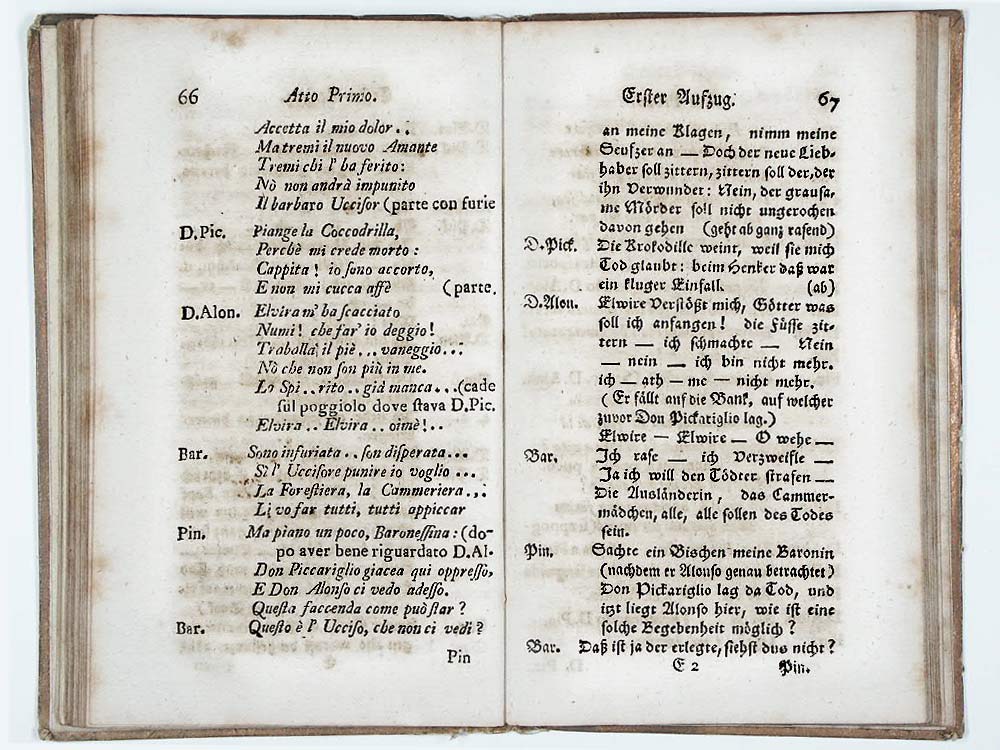 66 Atto Primo.
Accetta il mio dolor..
Ma tremi il nuovo Amante
Tremi chi l' ha ferito:
Nò non andrà impunito
Il barbaro Uccisor (parte con furie
D.Pic. Piange la Coccodrilla,
Perchè mi crede morto:
Cappita! io sono accorto,
E non mi cucca affè (parte.
D.Alon. Elvira m' ha scacciato
Numi! che far' io deggio!
Traballa il piè... vaneggio...
Nò che non son più in me.
Lo Spi..rito..già manca...(cade
sul poggiolo dove stava D.Pic.
Elvira.. Elvira.. oimè!..
Bar. Sono infuriata.. son disperata...
Sì l' Uccisore punire io voglio...
La Forestiera, la Cammeriera...
Li vo far tutti, tutti appiccar
Pin. Ma piano un poco, Baronessina: (do-
po aver bene riguardato D.Al.
Don Piccariglio giacea qui oppresso,
E Don Alonso ci vedo adesso.
Questa faccenda come può star?
Bar. Questo è l' Ucciso, che non ci vedi?
Pin
Erster Aufzug. 67
an meine Klagen, nimm meine
Seufzer an — Doch der neue Lieb-
haber soll zittern, zittern soll der, der
ihn Verwundet: Nein, der grausa-
me Mörder soll nicht ungerochen
davon gehen (geht ab ganz rasend)
D.Pick. Die Krokodille weint, weil sie mich
Tod glaubt: beim Henker daß war
ein kluger Einfall. (ab)
D.Alon. Elwire Verstößt mich, Götter was
soll ich anfangen! die Füsse zit-
tern — ich schmachte — Nein
— nein — ich bin nicht mehr.
ich — ath — me — nicht mehr.
(Er fällt auf die Bank, auf welcher
zuvor Don Pickariglio lag.)
Elwire — Elwire — O wehe —
Bar. Ich rase — ich Verzweifle —
Ja ich will den Tödter strafen —
Die Ausländerin, das Cammer-
mädchen, alle, alle sollen des Todes
sein.
Pin. Sachte ein Bischen meine Baronin
(nachdem er Alonso genau betrachtet)
Don Pickariglio lag da Tod, und
itzt liegt Alonso hier, wie ist eine
solche Begebenheit möglich?
Bar. Daß ist ja der erlegte, siehst dus nicht?
E 2 Pin.